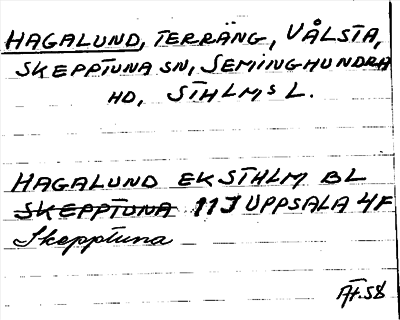 HAGALUND, TERRÄNG, VÅLSTA,
SKEPPTUNA SN, SEMINGHUNDRA
HD, STHLMS L.
HAGALUND EK STHLM BL
SKEPPTUNA 11J UPPSALA 4F
Skepptuna
ÄF.58